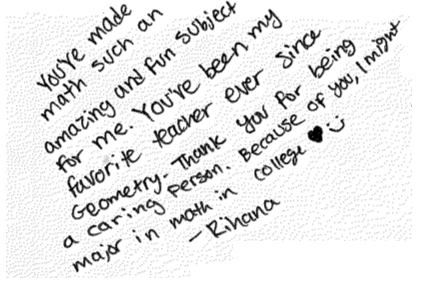 You've made
math such an
amazing and fun subject
for me. You've been my
favorite teacher ever since
Geometry. Thank you for being
a caring person. Because of you, I might
major in math in college ♥ :)
- Rihana